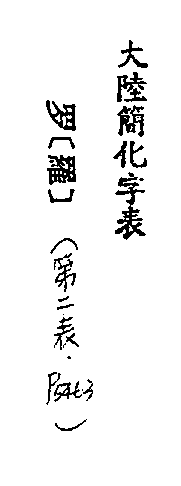 大陸簡化字表
罗〔羅〕
（第二表．P5463）